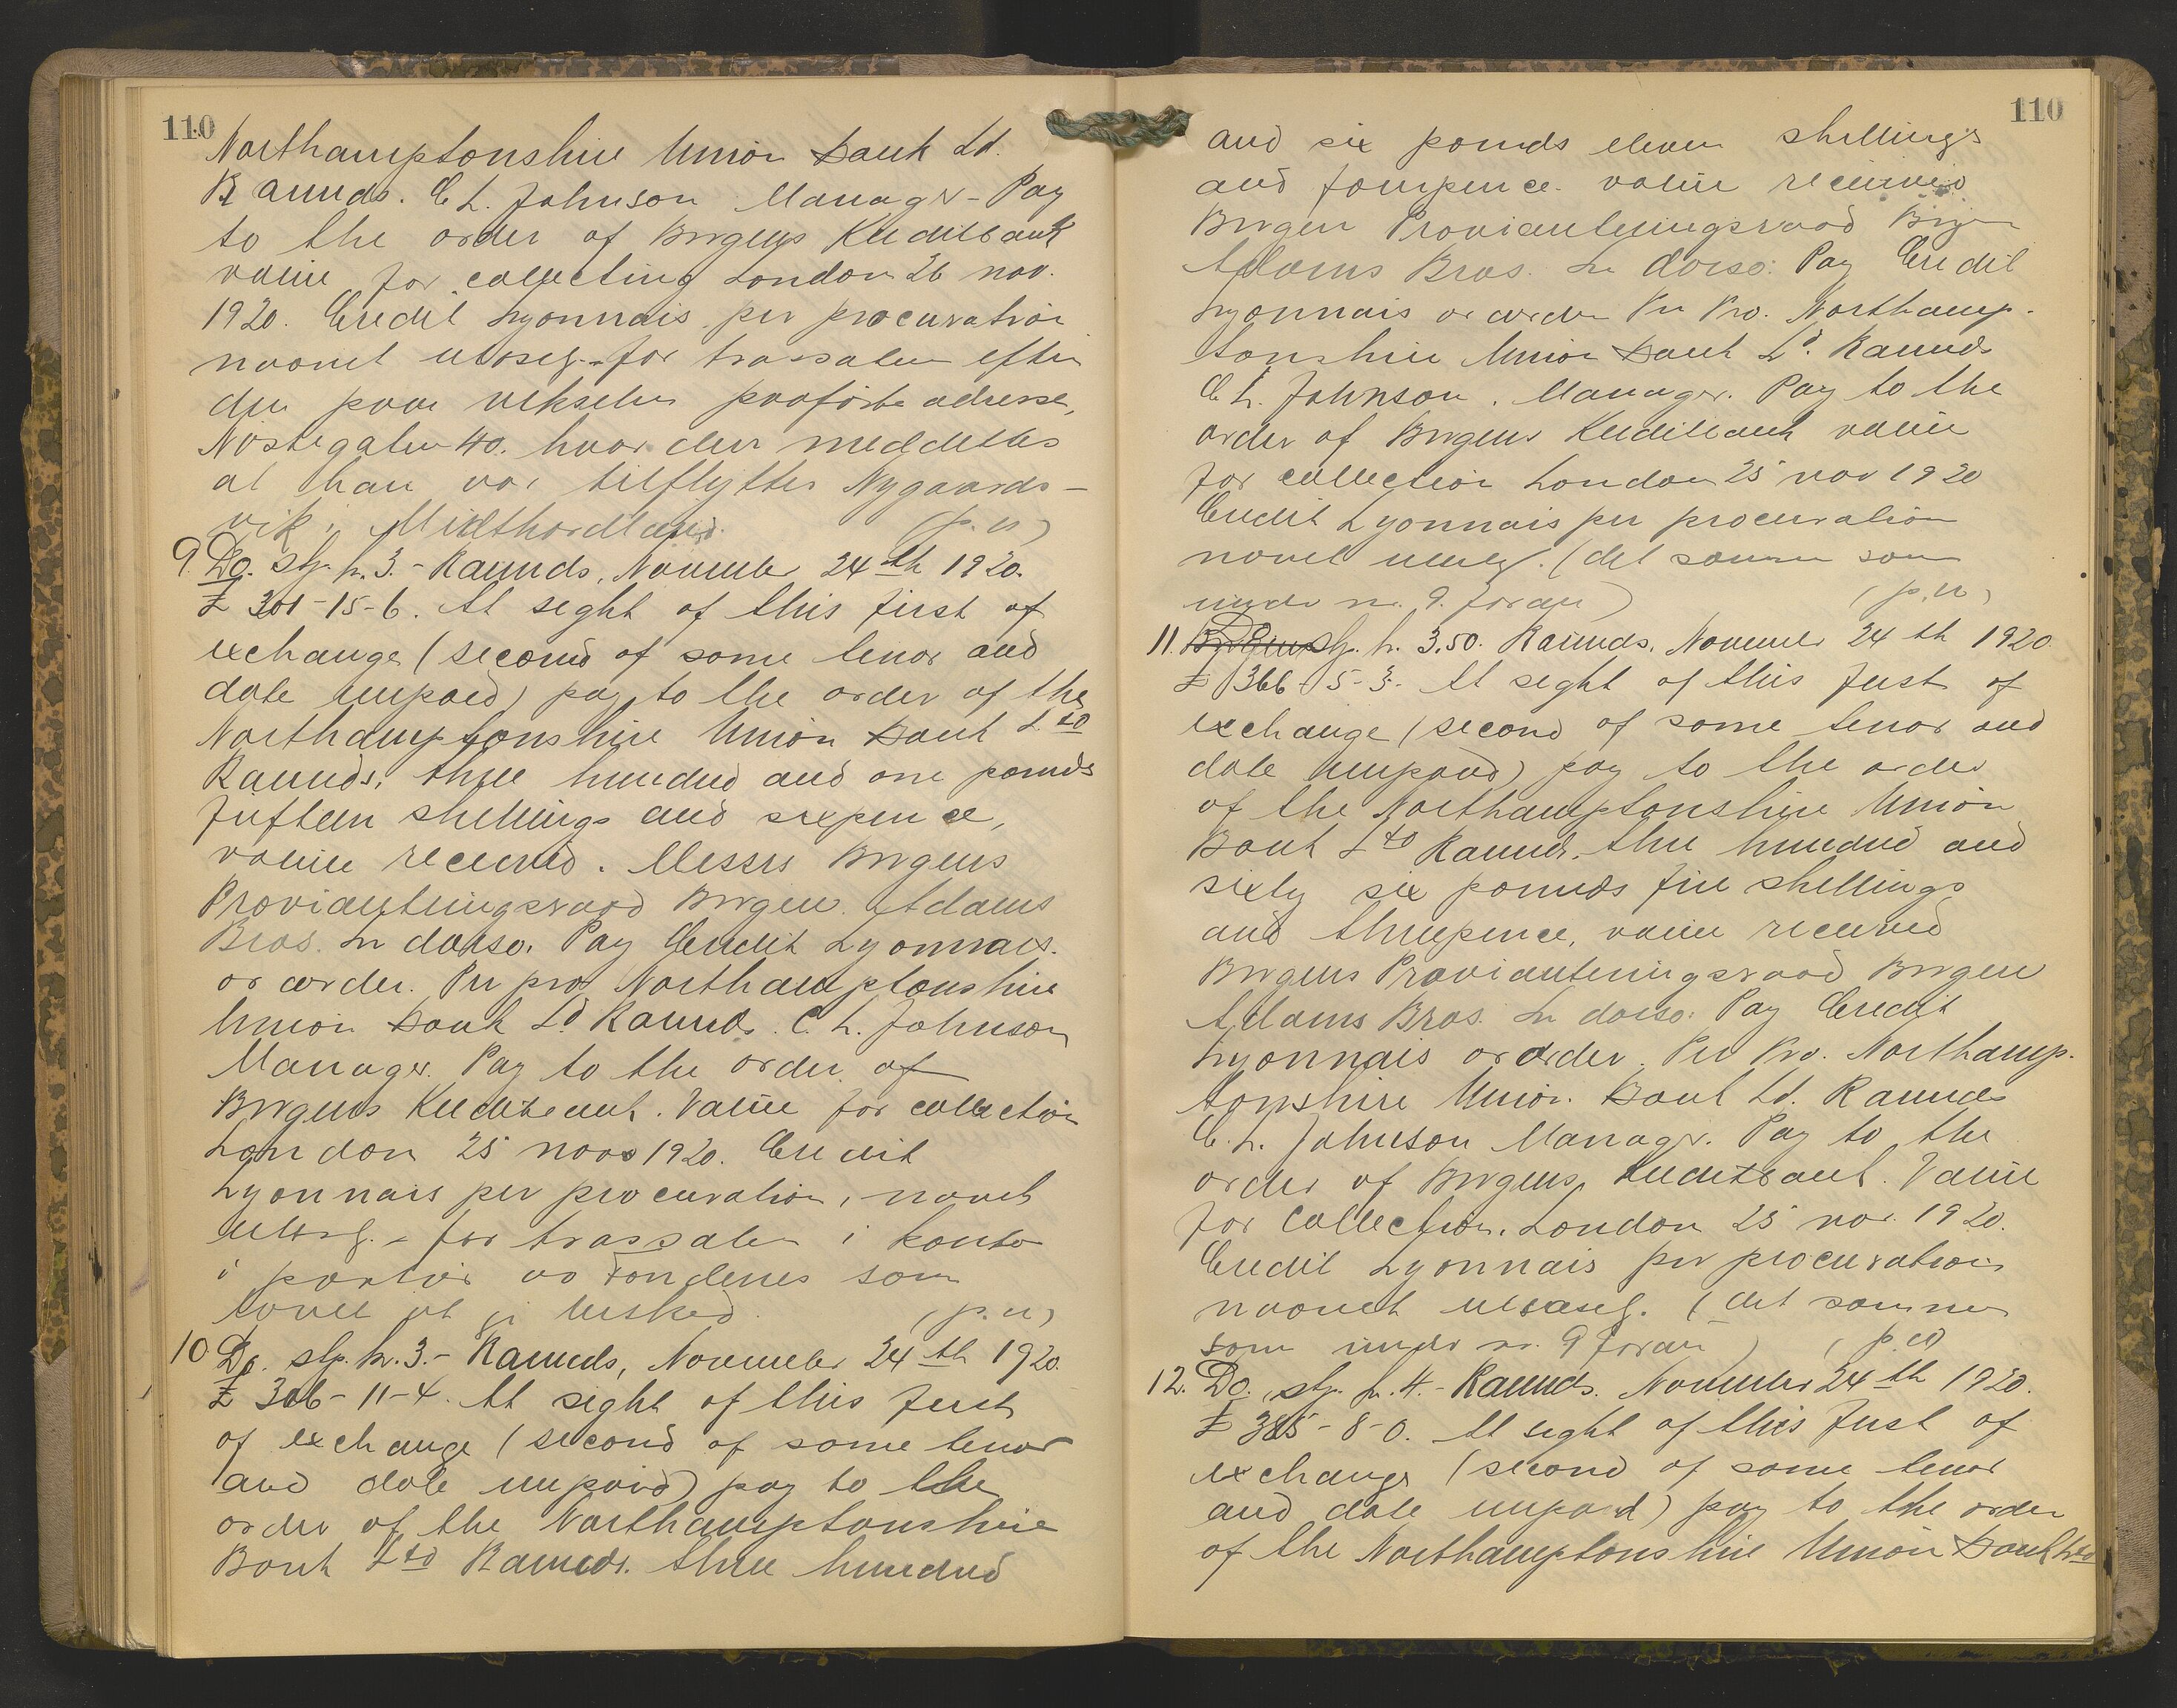 110
Northamptonshire Union Bank Ld.
Raunds. C. L. Johnson Manager - Pay
to the order of Bergens Kreditbank
value for collecting London 26 nov.
1920. Credit Lyonnais per procuration
novnet utvselg. for trassaten efter
den paa vekselen paaførte adresse,
Nøstegaten 40. hvor der meddeltes
at han var tilflyttet Nygaards-
vik i Midthordland. (p.n)
9. Do. stp. kr. 3.- Raunds, November 24th 1920.
£ 301-15-6. At sight of this first of
exchange (second of same tenor and
date unpaid) pay to the order of the
Northamptonshire Union Bank Ltd
Raunds, three hundred and one pounds
fifteen shillings and sixpence,
value received. Messrs Bergens
Provianteringsraad Bergen. Adams
Bros. In dorso. Pay Credit Lyonnais.
or order. Per pro Northamptonshire
Union Bank Ld Raunds. C. L. Johnson
Manager. Pay to the order of
Bergens Kreditbank. Value for collection
London 25 nov 1920. Credit
Lyonnais per procuration, novnet
for trassaten i kontor
i
lovet at gi beskjed (p.n)
10 Do. stp. kr. 3.- Raunds, November 24th 1920.
£ 306-11-4. At sight of this first
of exchange (second of same tenor
and date unpaid) pay to the
order of the Northamptonshire
Bank Ltd Raunds. three hundred
110
and six pounds eleven shillings
and fourpence value received
Bergen Provianteringsraad Bergen
Adams Bros. In dorso: Pay Credit
Lyonnais or order Per Pro. Northamp-
tonshire Union Bank Ld. Raunds
C. L. Johnson. Manager. Pay to the
order of Bergens Kreditbank value
for collection London 25 nov 1920
Credit Lyonnais per procuration
novnet (det samme som
under nr. 9. foran) (p.n)
11. stp. kr. 3.50. Raunds, November 24th 1920.
£ 366-5-3. At sight of this first of
exchange (second of same tenor and
date unpaid) pay to the order
of the Northamptonshire Union
Bank Ltd Raunds, three hundred and
sixty six pounds five shillings
and threepence, value received
Bergens Provianteringsraad Bergen
Adams Bros. In dorso: Pay Credit
Lyonnais or order. Per Pro. Northamp-
tonshire Union Bank Ld. Raunds
C. L. Johnson Manager. Pay to the
order of Bergens Kreditbank. Value
for collection. London 25 nov. 1920.
Credit Lyonnais per procuration
novnet (det samme
som under nr. 9 foran) (p.n)
12. Do. stp. kr. 4.- Raunds. November 24th 1920.
£ 385-8-0. At sight of this first of
exchange (second of same tenor
and date unpaid) pay to the order
of the Northamptonshire Union Bank Ltd